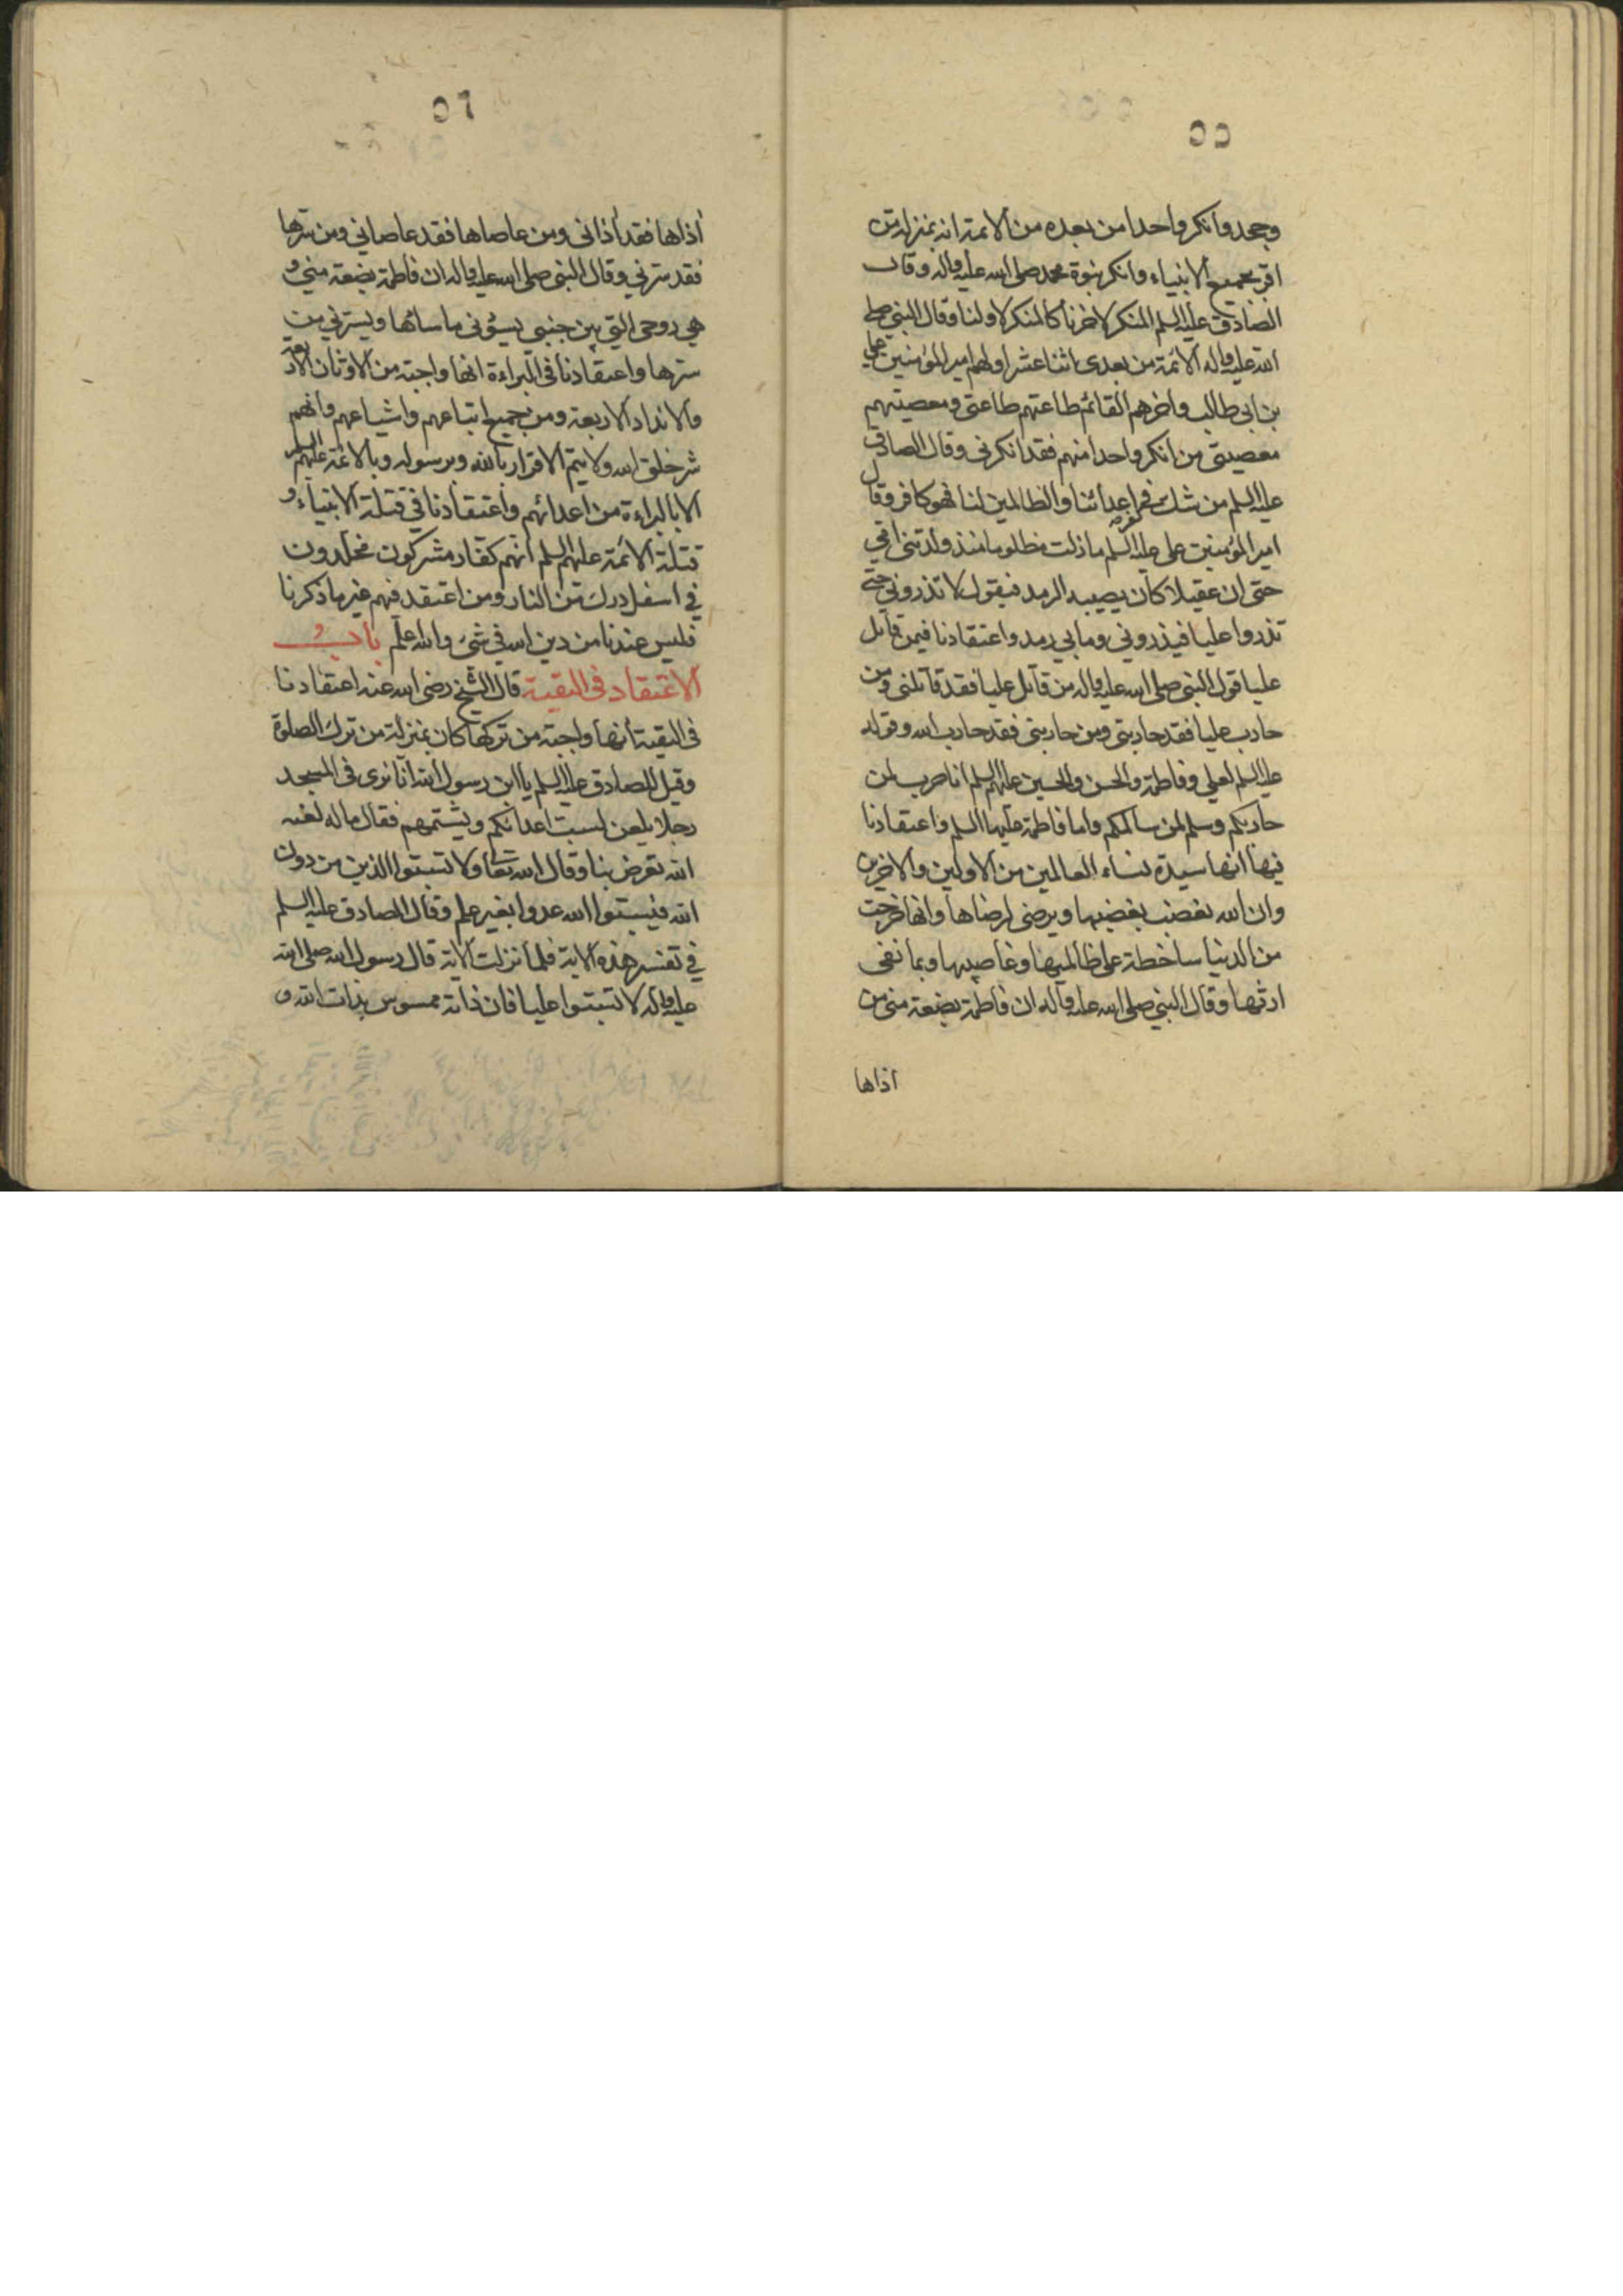 ٥٥
وجحد وانكر واحدا من بعده من الائمة انه بمنزلة من
اقر بجميع الانبياء وانكر بنبوة محمد صلى الله عليه واله وقال
الصادق عليه السلم المنكر لاخرنا كالمنكر لاولنا وقال النبي صلى
الله عليه واله الائمة من بعدى اثنا عشر اولهم امير المؤمنين على
بن ابى طالب واخرهم القائم طاعتهم طاعتى ومعصيتهم
معصيتى من انكر واحدا منهم فقد انكرنى وقال الصادق
عليه السلم من شك فى كفر اعدائنا والظالمين لنا فهو كافر وقال
امير المؤمنين على عليه السلم ما زلت مظلوما منذ ولدتنى امى
حتى ان عقيلا كان يصيبه الرمد فيقول لا تذرونى حتى
تذروا عليا فيذرونى وما بى رمد واعتقادنا فيمن قاتل
عليا قول النبى صلى الله عليه واله من قاتل عليا فقد قاتلنى ومن
حارب عليا فقد حاربنى ومن حاربنى فقد حارب الله وقوله
عليه السلم لعلى وفاطمة والحسن والحسين عليهم السلم انا حرب لمن
حاربكم وسلم لمن سالمكم واما فاطمة عليها السلم واعتقادنا
فيها انها سيدة نساء العالمين من الاولين والاخرين
وان الله يغضب بغضبها ويرضى لرضاها وانها خرجت
من الدنيا ساخطة على ظالميها وغاصبها وبما نفى
ارثها وقال النبي صلى الله عليه واله ان فاطمة بضعة منى من
اذاها
٥٦
اذاها فقد اذانى ومن عاصاها فقد عاصانى ومن سرها
فقد سرنى وقال النبى صلى الله عليه واله ان فاطمة بضعة منى و
هي روحى التي بين جنبى يسؤنى ما سائها ويسرنى من
سرها واعتقادنا فى البراءة انها واجبة من الاوثان الاربعة
والانداد الاربعة ومن جميع اتباعهم واشياعهم وانهم
شر خلق الله ولا يتم الاقرار بالله وبرسوله وبالائمة عليهم السلم
الا بالبراءة من اعدائهم واعتقادنا فى قتلة الانبياء و
قتلة الائمة عليهم السلم انهم كفار مشركون مخلدون
في اسفل درك من النار ومن اعتقد فيهم غير ما ذكرنا
فليس عندنا من دين الله فى شئ والله اعلم باب
الاعتقاد فى التقية قال الشيخ رضى الله عنه اعتقادنا
فى التقية انها واجبة من تركها كان بمنزلة من ترك الصلوة
وقيل للصادق عليه السلم يا ابن رسول الله انا نرى فى المسجد
رجلا يلعن لسبت اعدائكم ويشتمهم فقال ما له لعنه
الله تعرض بنا وقال الله تعالى ولا تسبوا الذين من دون
الله فيسبوا الله عدوا بغير علم وقال الصادق عليه السلم
في تفسير هذه الاية فلما نزلت الاية قال رسول الله صلى الله
عليه واله لا تسبوا عليا فان ذاته ممسوس بذات الله و